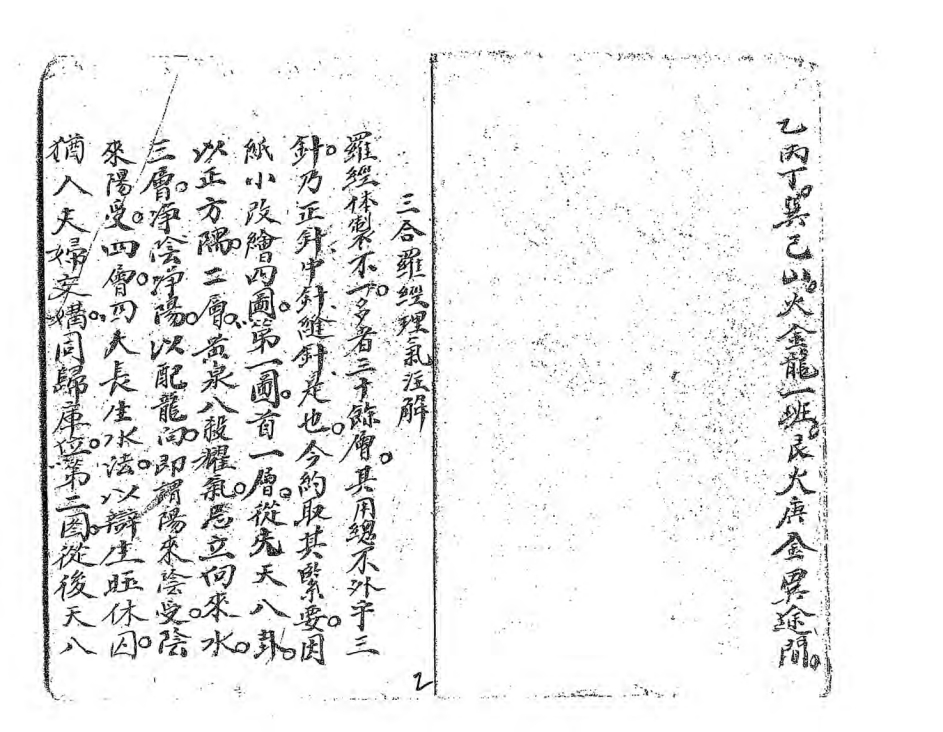 乙丙丁。巽己山。火金龍一班。艮火庚金異途間。
三合羅經理氣注解
羅經体製不一。多者三十餘層。其用總不外乎三
針。乃正針中針縫針是也。今約取其緊要。因
紙小改繪四圖。第一圖首一層。從先天八卦。
以正方隅。二層。黃泉八殺耀氣。忌立向來水。
三層。淨陰淨陽。以配龍向。即謂陽來陰受。陰
來陽受。四層。四大長生水法。以辯生旺休囚。
猶人夫婦交媾。同歸庫位。第二图從後天八
2